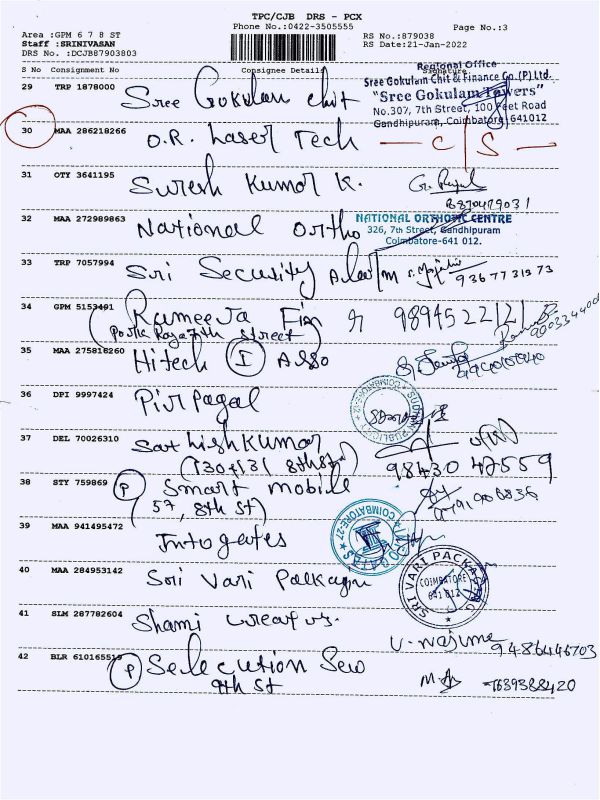 TPC/CJB DRS - PCX
Phone No.:0422-3505555
Page No.:3
Area :GPM 6 7 8 ST
RS No.:879038
Staff :SRINIVASAN
RS Date:21-Jan-2022
DRS No. :DCJB87903803
S No Consignment No Consignee Details Signature
Regional Office
29 TRP 1878000 Sree Gokulam Chit
Sree Gokulam Chit & Finance Co.(P) Ltd.
"Sree Gokulam Towers"
No.307, 7th Street, 100 Feet Road
Gandhipuram, Coimbatore-641012
30 MAA 286218266 O.R. Laser Tech C/S
31 OTY 3641195 Suresh Kumar K.
32 MAA 272989863 National Ortho
NATIONAL ORTHOTIC CENTRE
326, 7th Street, Gandhipuram
Coimbatore-641 012.
33 TRP 7057994 Sri Security Alarm 9367731973
34 GPM 5153491 Rameeja Fin
35 MAA 275816260 Hitech I Asso
36 DPI 9997424
37 DEL 70026310 Sathish Kumar
(130+131 8th St) 98430 47559
38 STY 759869 P Smart Mobile
(57, 8th St)
39 MAA 941495472 Infogates
COIMBATORE-27
40 MAA 284953142 Sri Vari Packagin
SRI VARI PACKAGING
COIMBATORE
641 012
41 SLM 287782604 Shami
9486446703
42 BLR 610165519 P Selection Sew
9th St 7639388420